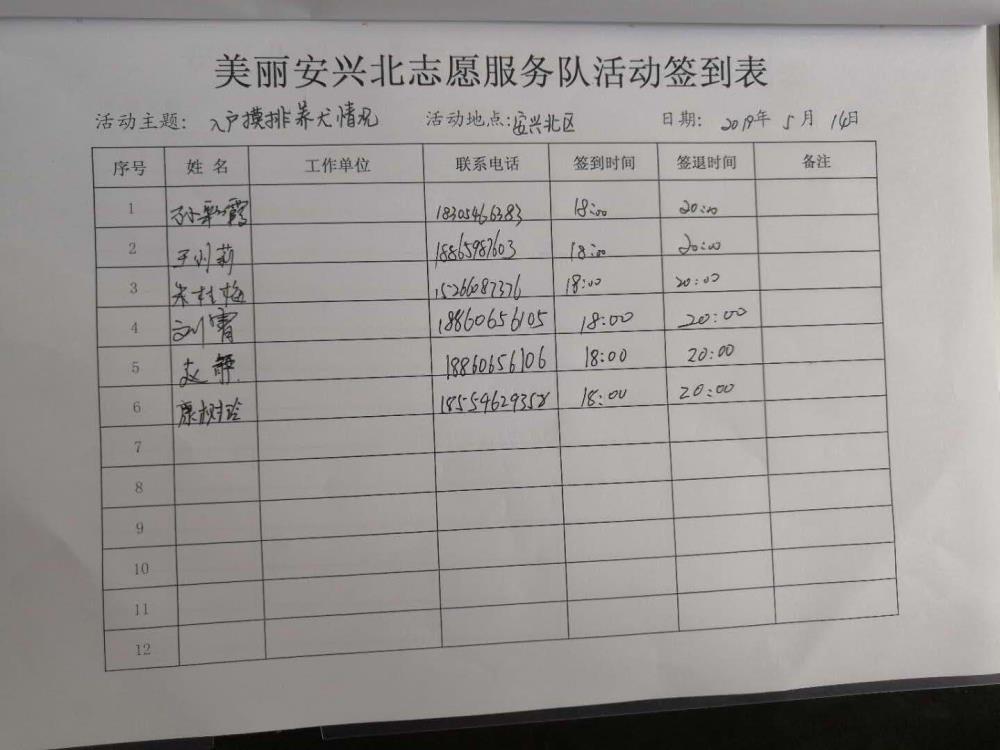 美丽安兴北志愿服务队活动签到表
活动主题: 入户摸排养犬情况 活动地点: 安兴北区 日期: 2019年 5月 14日
序号 姓名 工作单位 联系电话 签到时间 签退时间 备注
1 孙彩霞 18305466383 18:00 20:00
2 于树莉 18865987603 18:00 20:00
3 朱桂梅 15266087376 18:00 20:00
4 刘霄 18860656105 18:00 20:00
5 赵静 18860656106 18:00 20:00
6 康树玲 18554629358 18:00 20:00
7
8
9
10
11
12